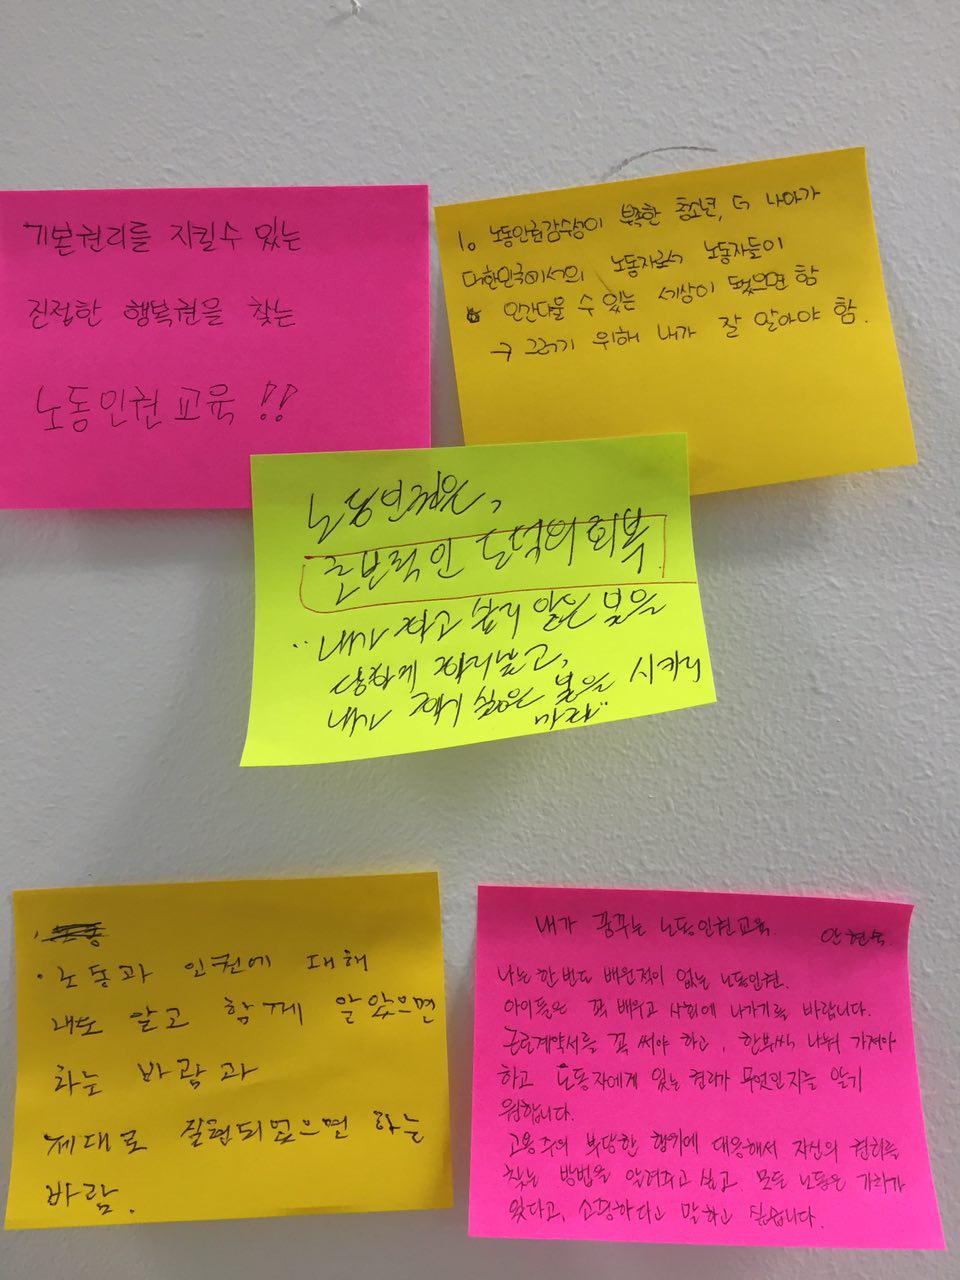 기본권리를 지킬수 있는
진정한 행복권을 찾는
노동인권교육 !!
1. 노동인권감수성이 부족한 청소년, 더 나아가
대한민국에서의 노동자로서 노동자들이
인간다울 수 있는 세상이 됐으면 함
→ 그러기 위해 내가 잘 알아야 함.
노동인권은,
근본적인 도덕의 회복
"내가 하고 싶지 않은 일을
당하게 하지
내가 하기 싫은 일을 시키지
마라"
· 노동과 인권에 대해
나도 알고 함께 알았으면
하는 바람과
제대로 실현되었으면 하는
바람.
내가 꿈꾸는 노동인권교육. 안현숙
나는 한번도 배운적이 없는 노동인권.
아이들은 꼭 배우고 사회에 나가기를 바랍니다.
근로계약서를 꼭 써야 하고, 한부씩 나눠 가져야
하고 노동자에게 있는 권리가 무엇인지를 알기
원합니다.
고용주의 부당한 행위에 대응해서 자신의 권리를
찾는 방법을 알려주고 싶고 모든 노동은 가치가
있다고, 소중하다고 말하고 싶습니다.